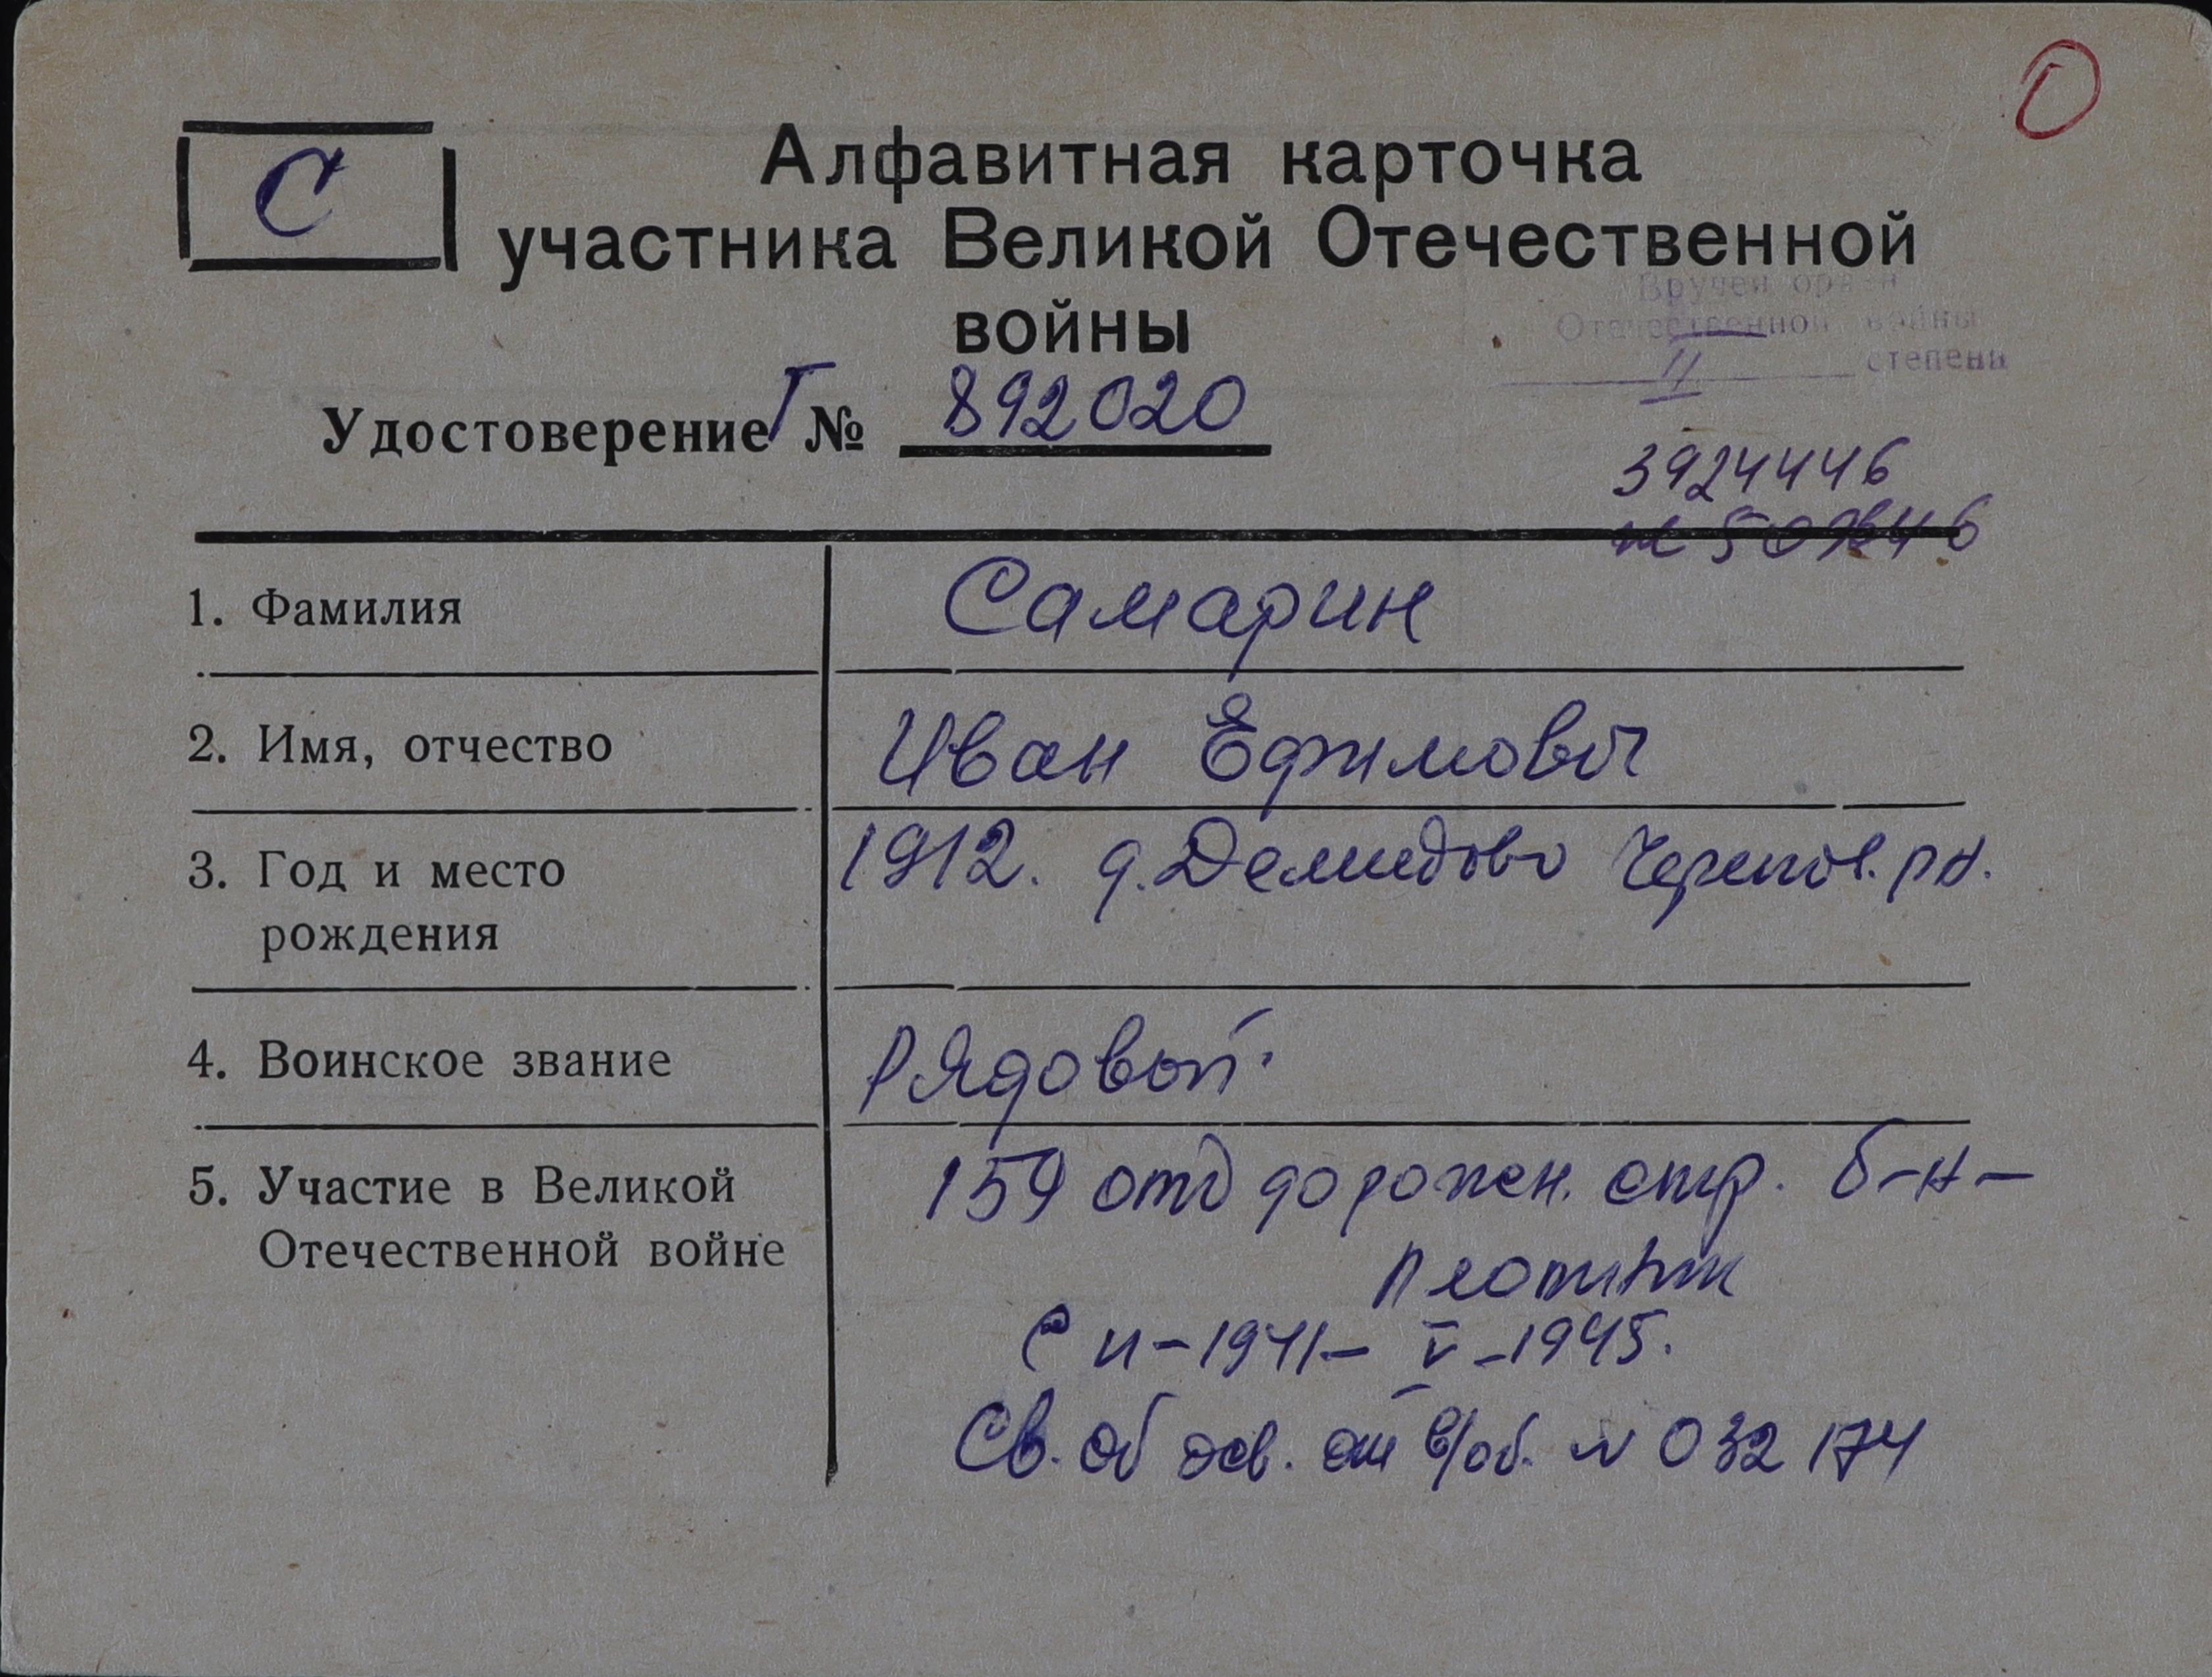 О
С
Алфавитная карточка
участника Великой Отечественной
войны
Вручен орден
Отечественной войны
II степени
Удостоверение Г № 892020
3924446
1. Фамилия Самарин
2. Имя, отчество Иван Ефимович
3. Год и место 1912. д. Демидово Черепов. р-н.
рождения
4. Воинское звание Рядовой.
5. Участие в Великой 159 отд дорожн. стр. б-н-
Отечественной войне плотник
С 11-1941- V-1945.
Св. об осв. от в/об. N 032174